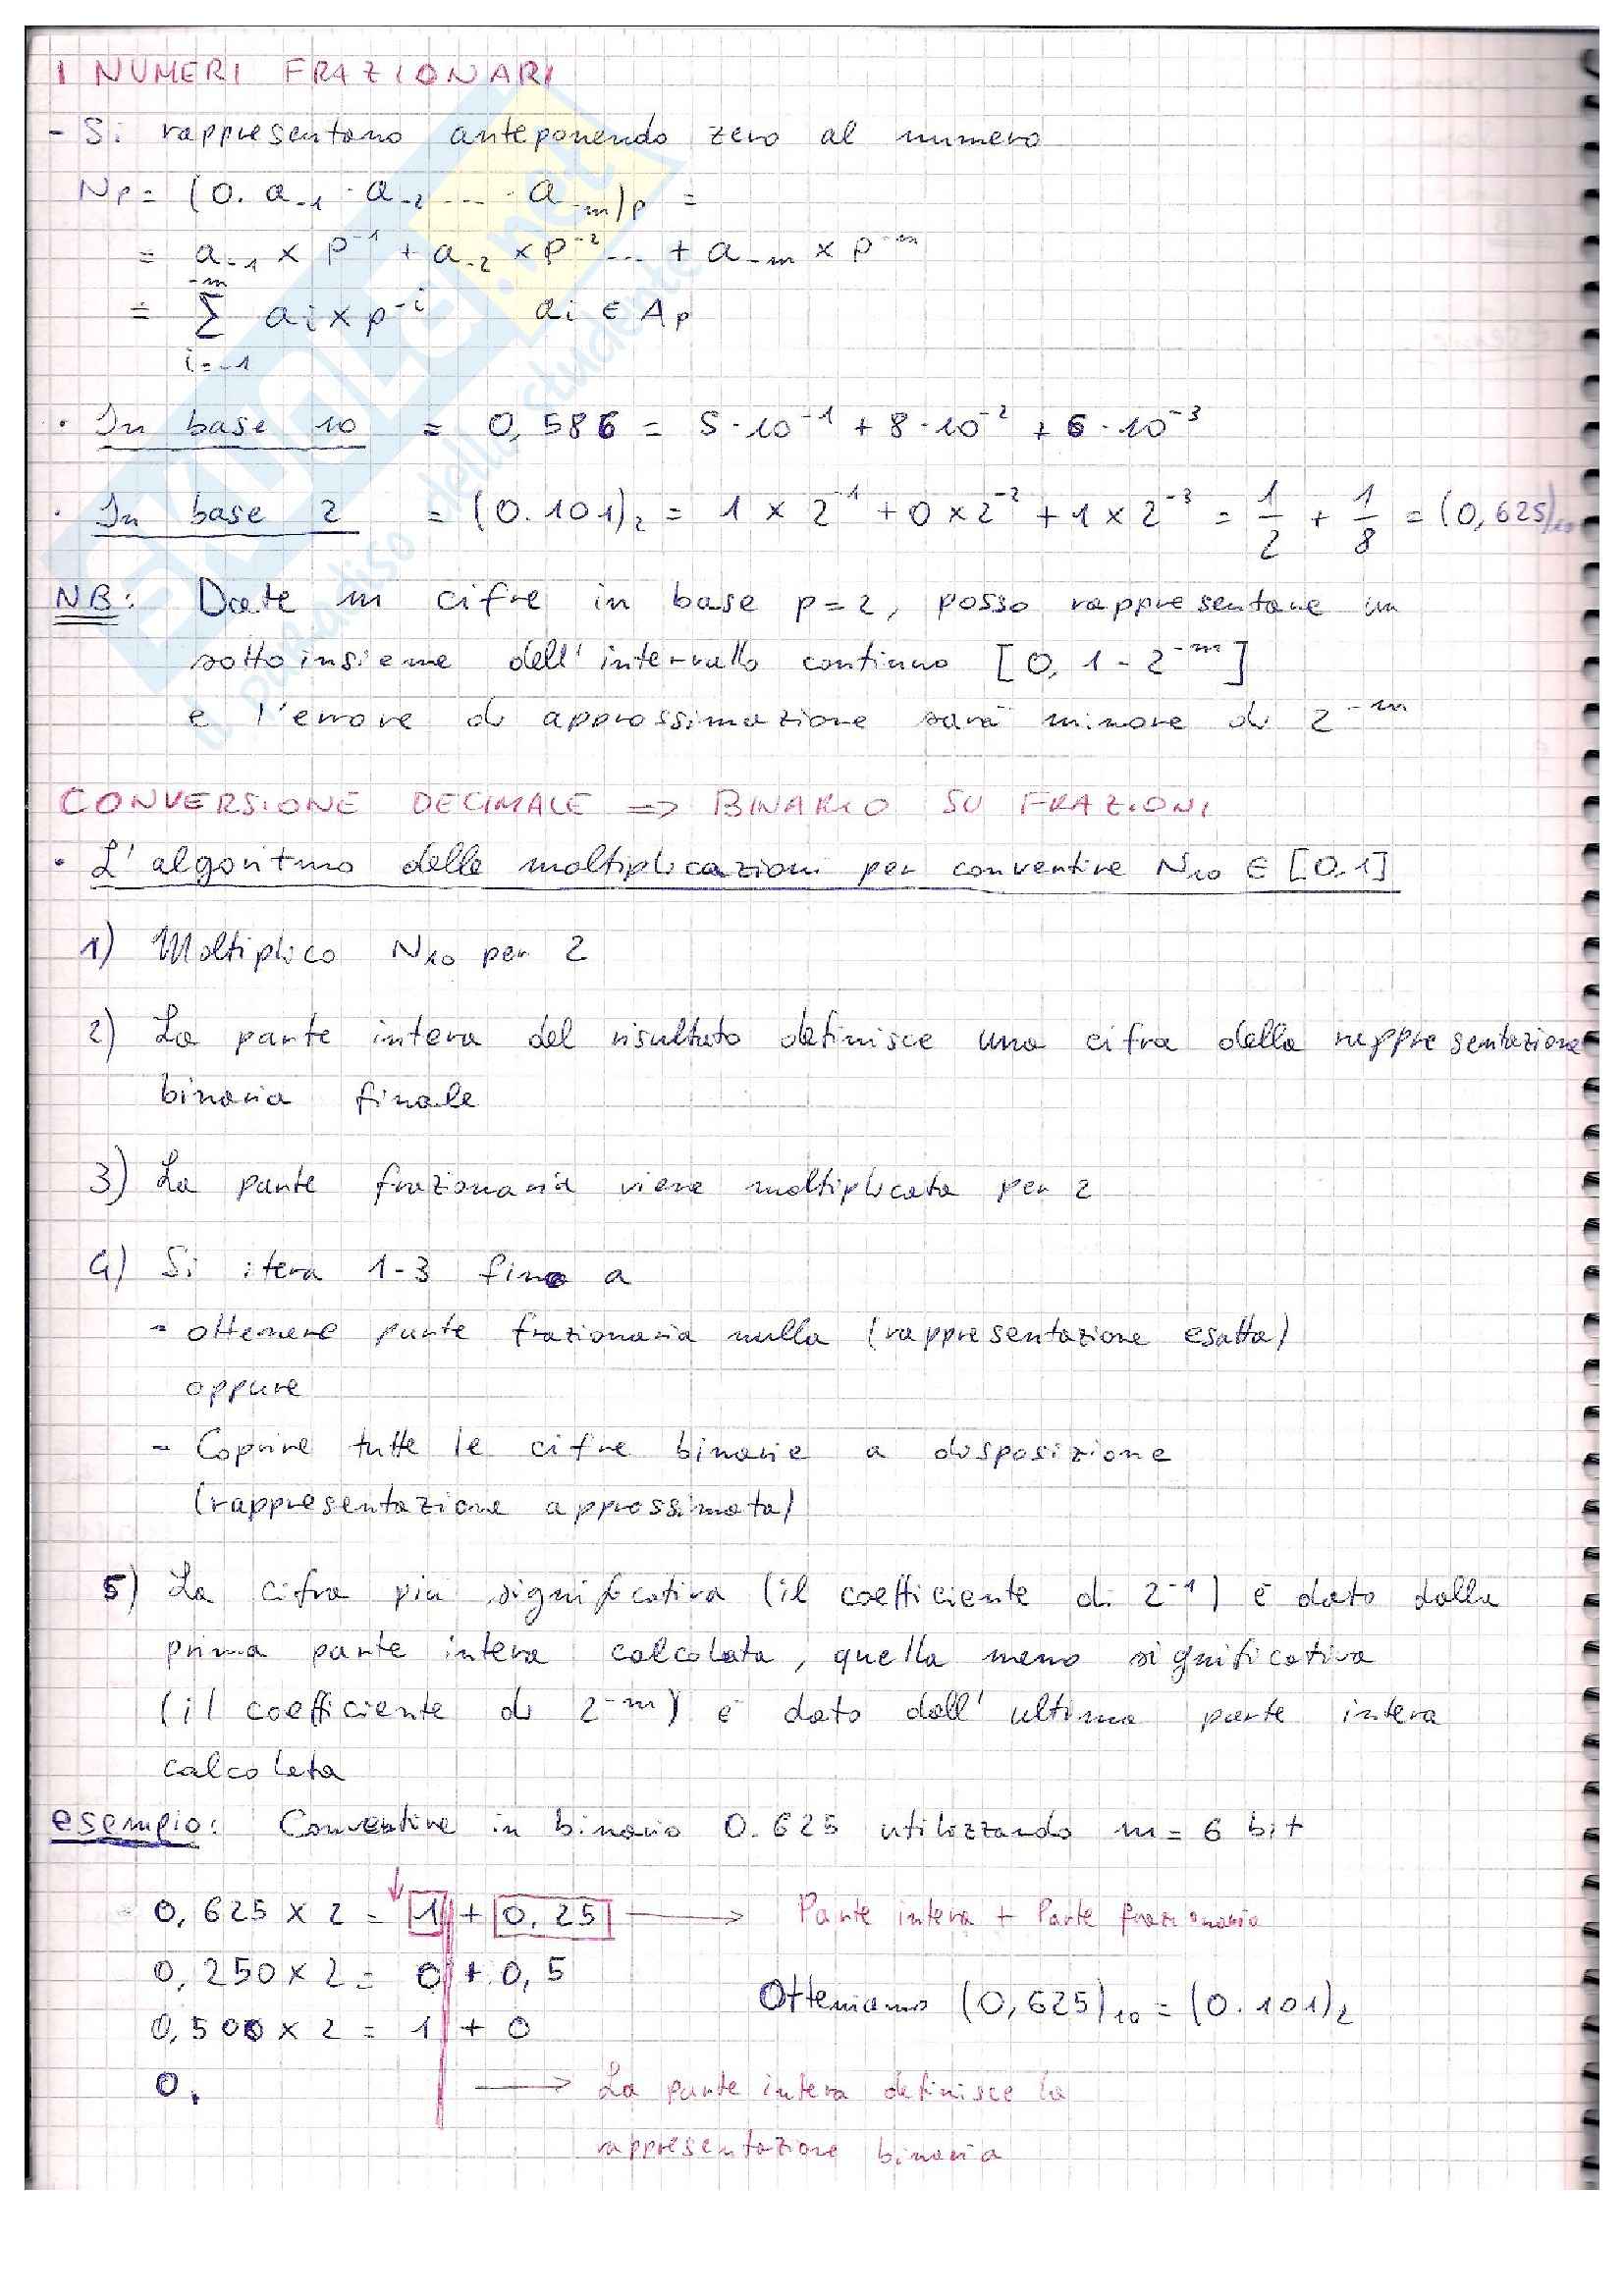 I NUMERI FRAZIONARI
- Si rappresentano anteponendo zero al numero
Np = (0. a₋₁ · a₋₂ ... · a₋ₘ)p =
= a₋₁ × p⁻¹ + a₋₂ × p⁻² ... + a₋ₘ × p⁻ᵐ
-m
= Σ ai × p⁻ⁱ ai ∈ Ap
i=-1
· In base 10 = 0,586 = 5·10⁻¹ + 8·10⁻² + 6·10⁻³
· In base 2 = (0.101)₂ = 1 × 2⁻¹ + 0 × 2⁻² + 1 × 2⁻³ = 1/2 + 1/8 = (0,625)₁₀
NB: Date m cifre in base p=2, posso rappresentare un
sottoinsieme dell'intervallo continuo [0, 1-2⁻ᵐ]
e l'errore di approssimazione sarà minore di 2⁻ᵐ
CONVERSIONE DECIMALE => BINARIO SU FRAZIONI
· L'algoritmo delle moltiplicazioni per convertire N₁₀ ∈ [0.1]
1) Moltiplico N₁₀ per 2
2) La parte intera del risultato definisce una cifra della rappresentazione
binaria finale
3) La parte frazionaria viene moltiplicata per 2
4) Si itera 1-3 fino a
- ottenere parte frazionaria nulla (rappresentazione esatta)
oppure
- Coprire tutte le cifre binarie a disposizione
(rappresentazione approssimata)
5) La cifra piu significativa (il coefficiente di 2⁻¹) è dato dalla
prima parte intera calcolata, quella meno significativa
(il coefficiente di 2⁻ᵐ) è dato dall'ultima parte intera
calcolata
esempio: Convertire in binario 0.625 utilizzando m=6 bit
0,625 × 2 = 1 + 0,25 → Parte intera + Parte frazionaria
0,250 × 2 = 0 + 0,5
Otteniamo (0,625)₁₀ = (0.101)₂
0,500 × 2 = 1 + 0
0. → La parte intera definisce la
rappresentazione binaria